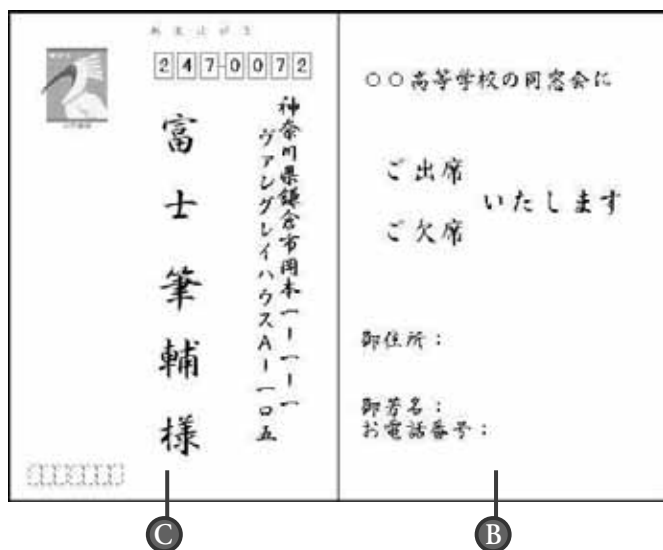 247-0072
神奈川県鎌倉市岡本一ー一ー一
ヴァングレイハウスAー一〇五
富士筆輔様
○○高等学校の同窓会に
ご出席
いたします
ご欠席
御住所：
御芳名：
お電話番号：
C
B